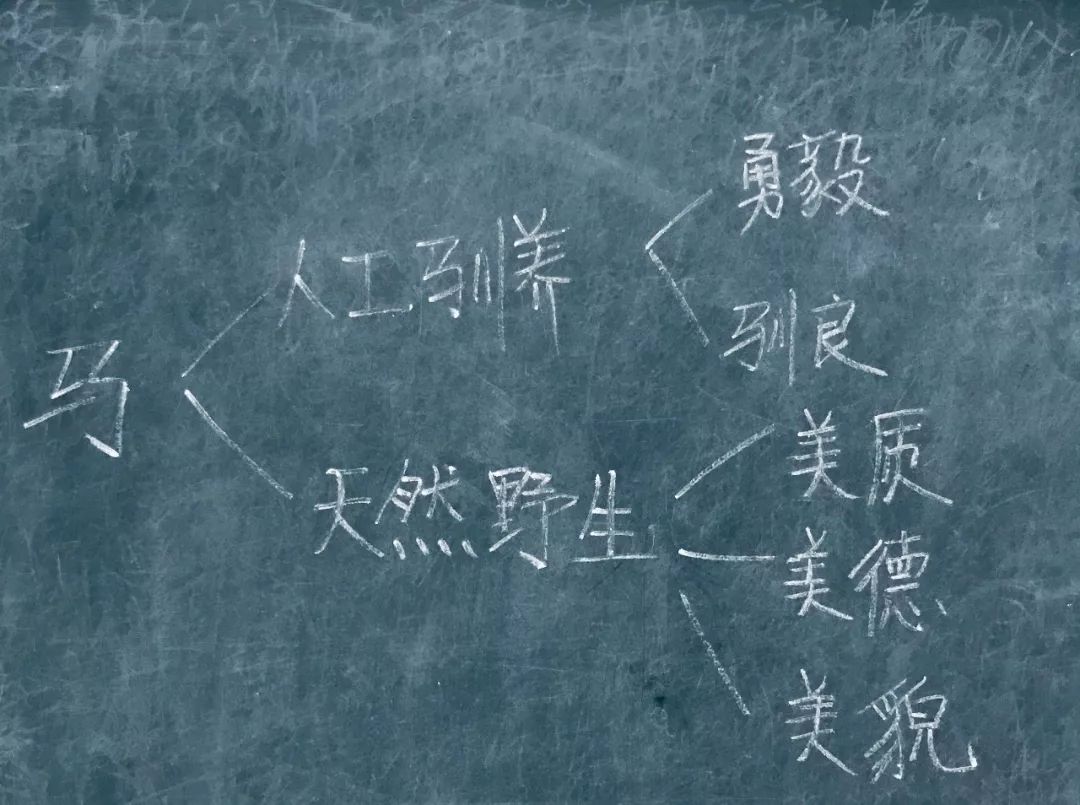 马
人工驯养
勇毅
驯良
天然野生
美质
美德
美貌